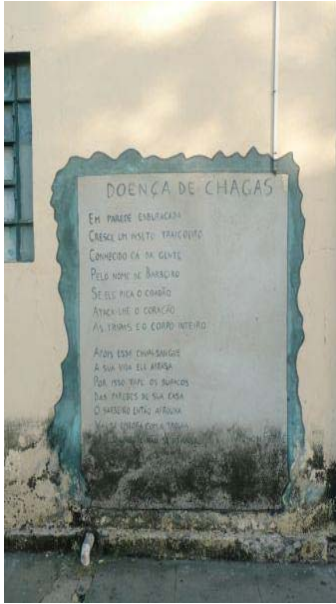 DOENÇA DE CHAGAS
EM PAREDE ESBURACADA
CRESCE UM INSETO TRAIÇOEIRO
CONHECIDO CA DA GENTE
PELO NOME DE BARBEIRO
SE ELE PICA O CIDADÃO
ATACA-LHE O CORAÇÃO
AS TRIPAS E O CORPO INTEIRO
APOIS ESSE CHUPA-SANGUE
A SUA VIDA ELE ATRASA
POR ISSO TAPE OS BURACOS
DAS PAREDES DE SUA CASA
O BARBEIRO ENTÃO